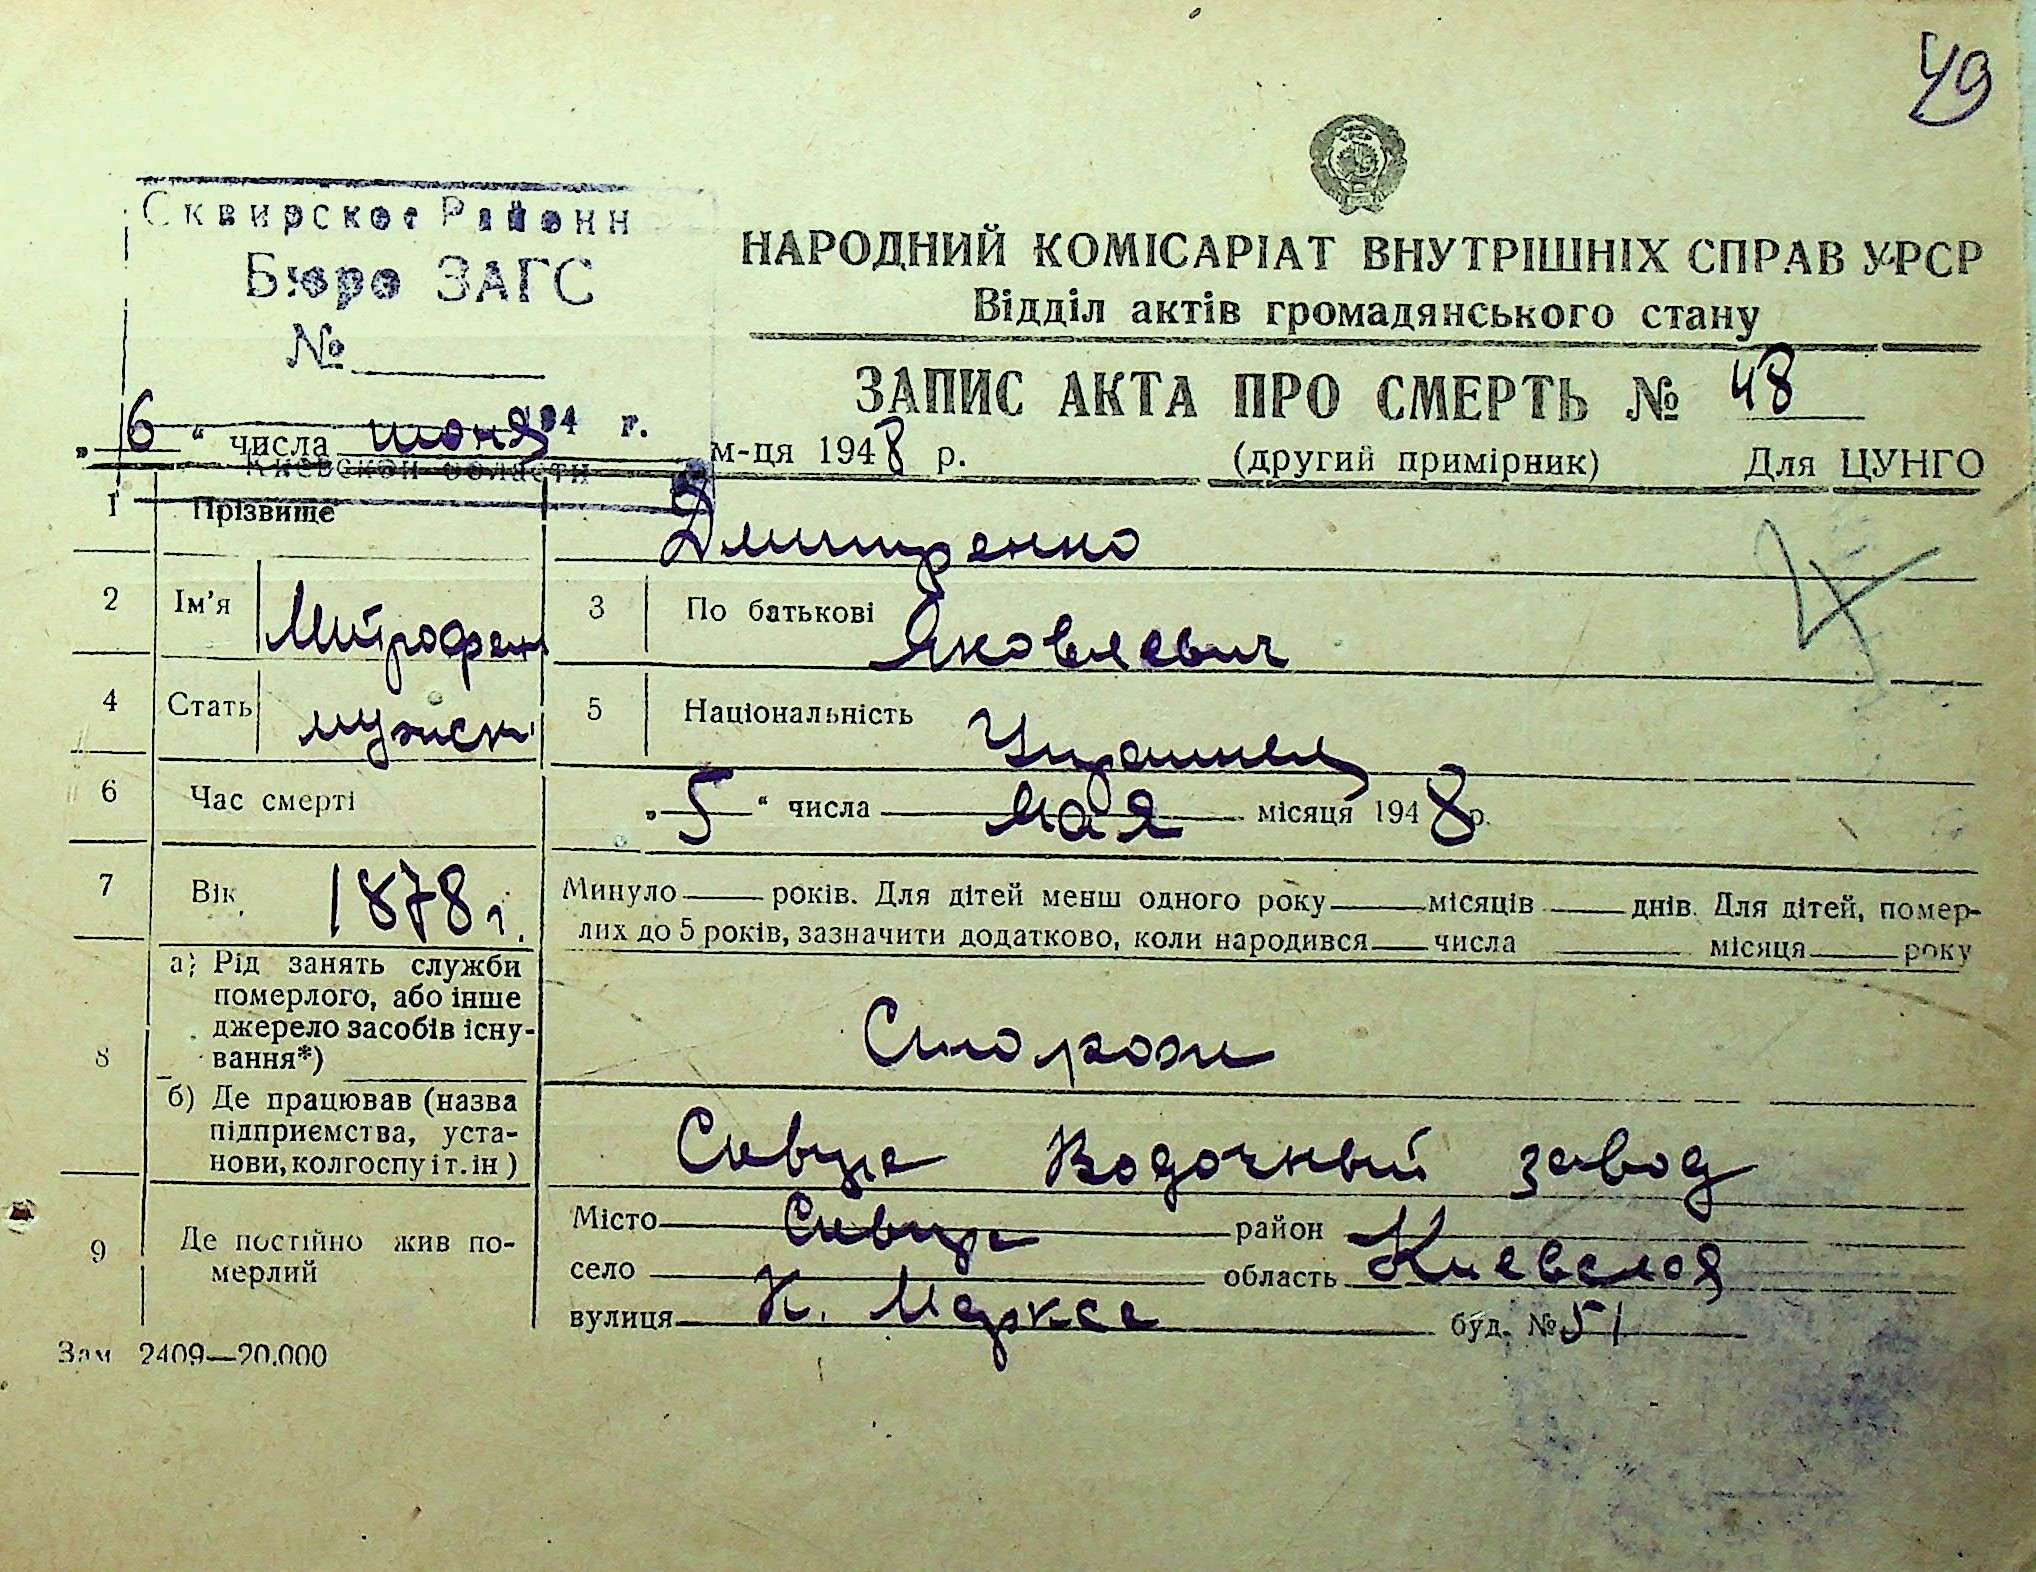 49
Сквирское Районн
Бюро ЗАГС
№
194 г.
Киевской области
НАРОДНИЙ КОМІСАРІАТ ВНУТРІШНІХ СПРАВ УРСР
Відділ актів громадянського стану
ЗАПИС АКТА ПРО СМЕРТЬ № 48
„ 6 “ числа июня м-ця 1948 р. (другий примірник) Для ЦУНГО
1 Прізвище Дмитренко
2 Ім’я Митрофан 3 По батькові Яковлевич
4 Стать мужск 5 Національність Украинец
6 Час смерті „ 5 “ числа мая місяця 1948 р.
7 Вік 1878 г. Минуло років. Для дітей менш одного року місяців днів. Для дітей, помер-
лих до 5 років, зазначити додатково, коли народився числа місяця року
8 а) Рід занять служби
померлого, або інше
джерело засобів існу-
вання*)
Сторож
б) Де працював (назва
підприємства, уста-
нови, колгоспу і т. ін )
Сквира Водочный завод
9 Де постійно жив по-
мерлий
Місто Сквира район
село область Киевская
вулиця К. Маркса буд. № 51
Зам 2409—20.000